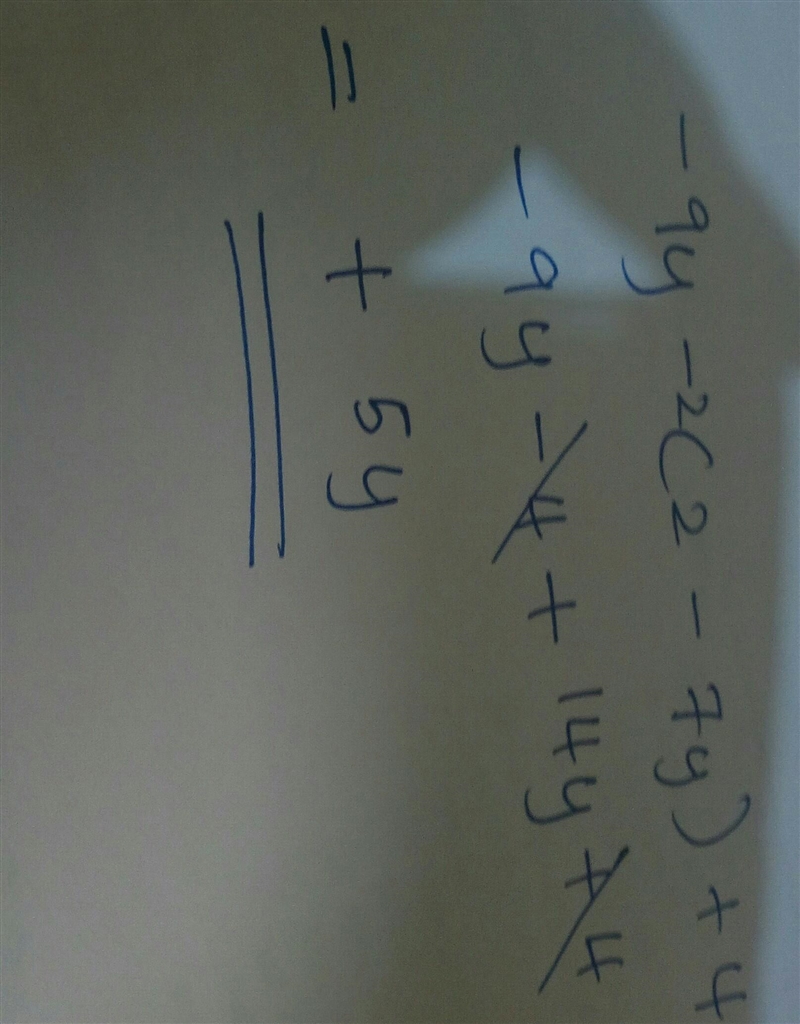 -9y -2(2 - 7y) + 4
-9y -4 + 14y +4
= + 5y